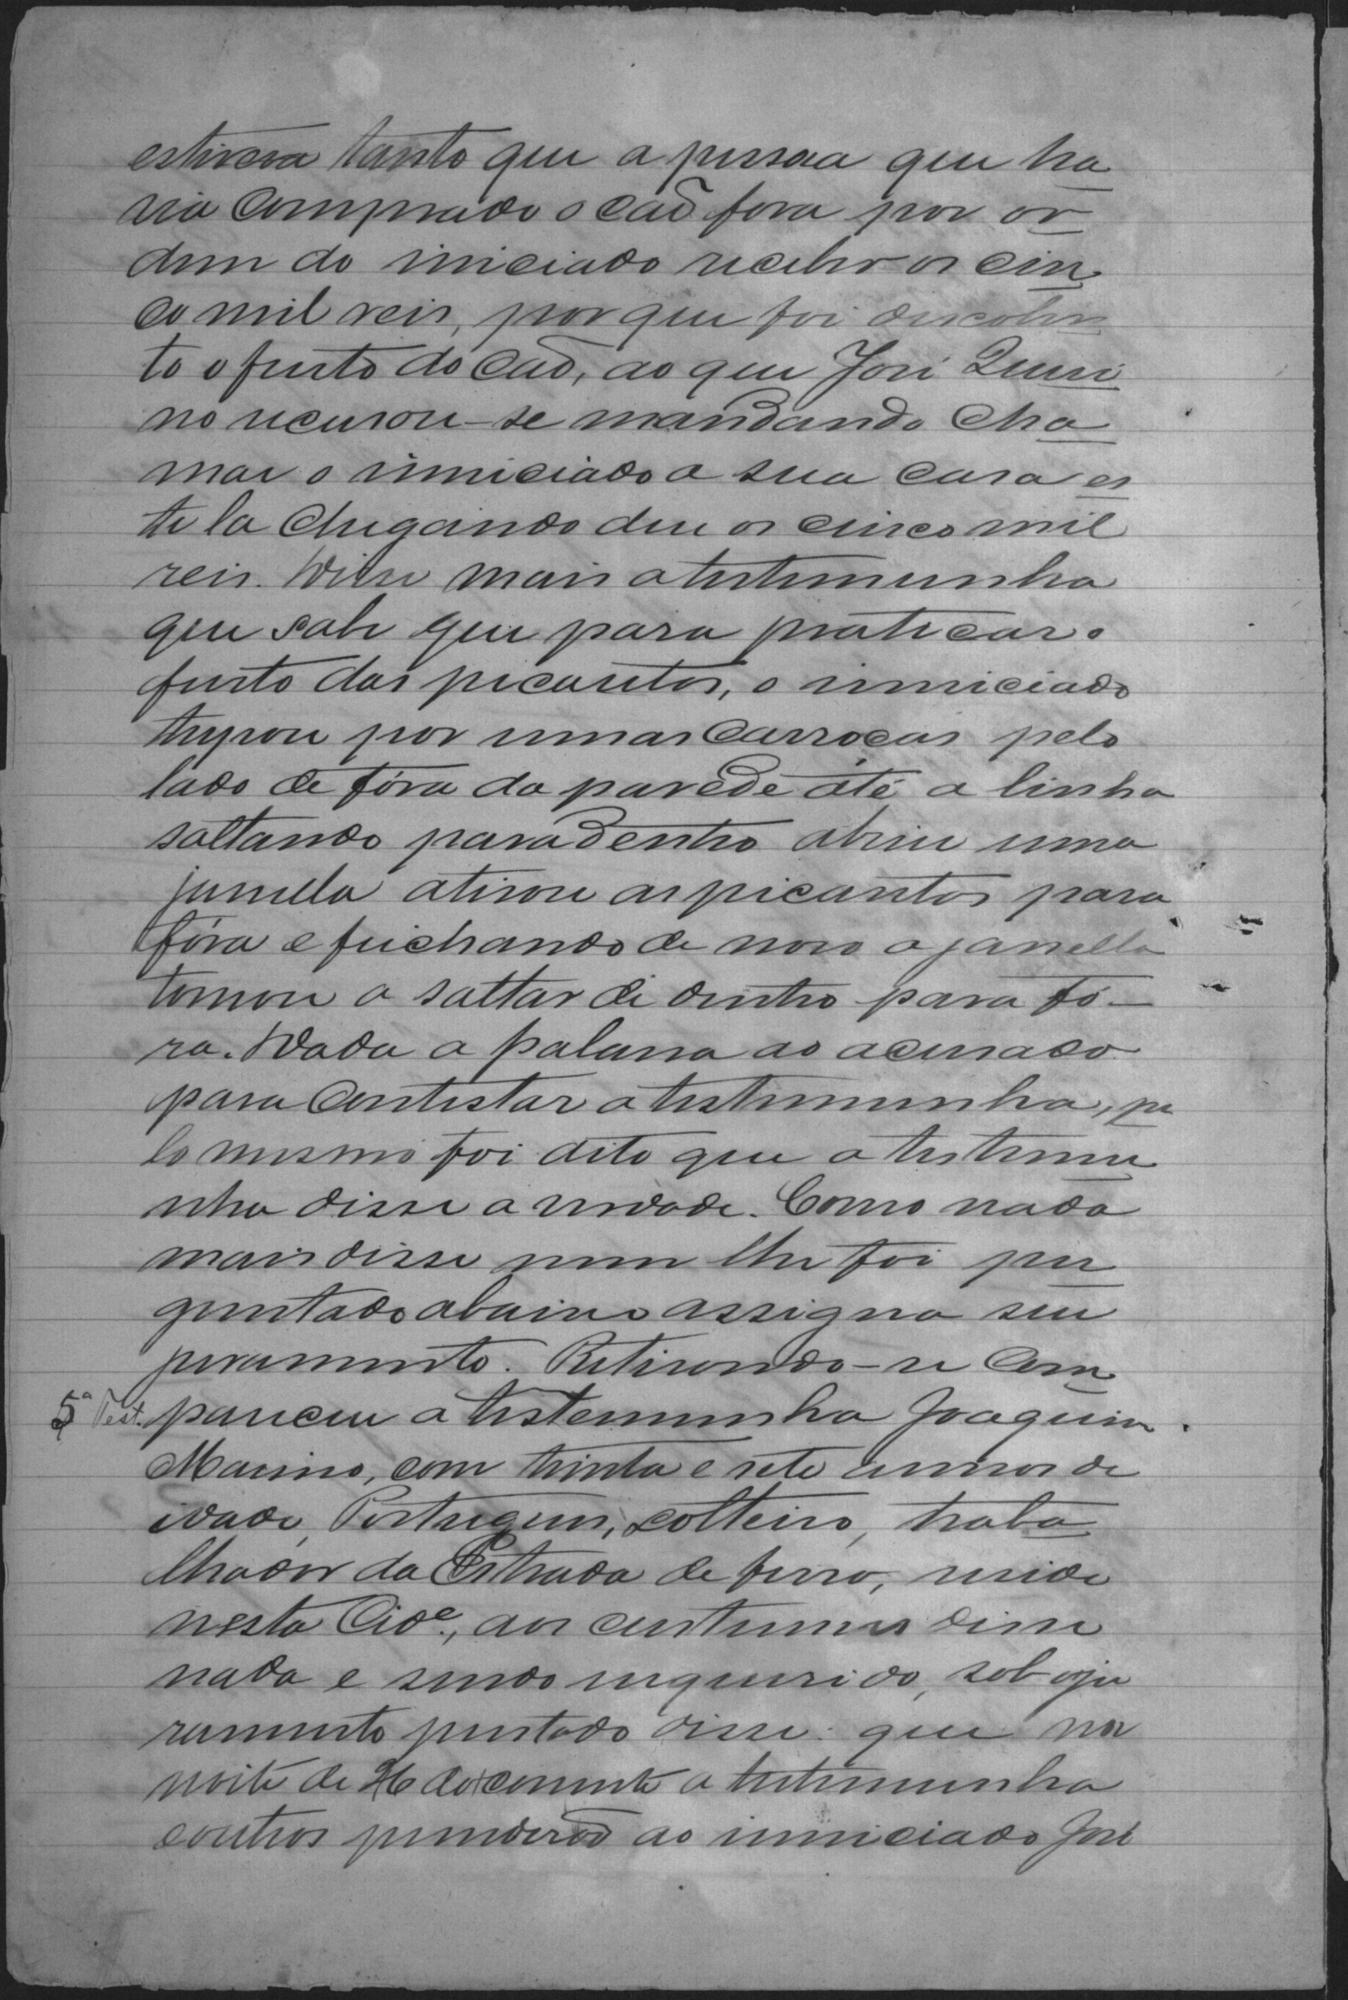 estivera tanto que a pessoa que ha
via comprado o cão fora por or
dem do iniciado receber os cin
co mil reis, por que foi descober
to o furto do cão, ao que José Quiri
no recusou-se mandando cha
mar o inniciado a sua casa es
te la chegando deu os cinco mil
reis. Disse mais a testemunha
que sabe que para praticar o
furto das picaretas, o inniciado
trepou por umas carroças pelo
lado de fóra da parede até a linha
saltando para dentro abriu uma
janella atirou as picaretas para
fóra e feichando de novo a janella
tornou a saltar de dentro para fó-
ra. Dada a palavra ao accusado
para contestar a testemunha, pe
lo mesmo foi dito que a testemu
nha disse a verdade. Como nada
mais disse nem lhe foi per
guntado abaixo assigna seu
juramento. Retirando-se com
5ª Test. pareceu a testemunha Joaquim
Marino, com trinta e sete annos de
idade, Portuguez, solteiro, traba
lhador da Estrada de ferro, reside
nesta Cidᵉ, aos custumes disse
nada e sendo inquerido, sob o ju
ramento prestado disse: que na
noite de 26 do corrente a testemunha
e outros prenderão ao inniciado José